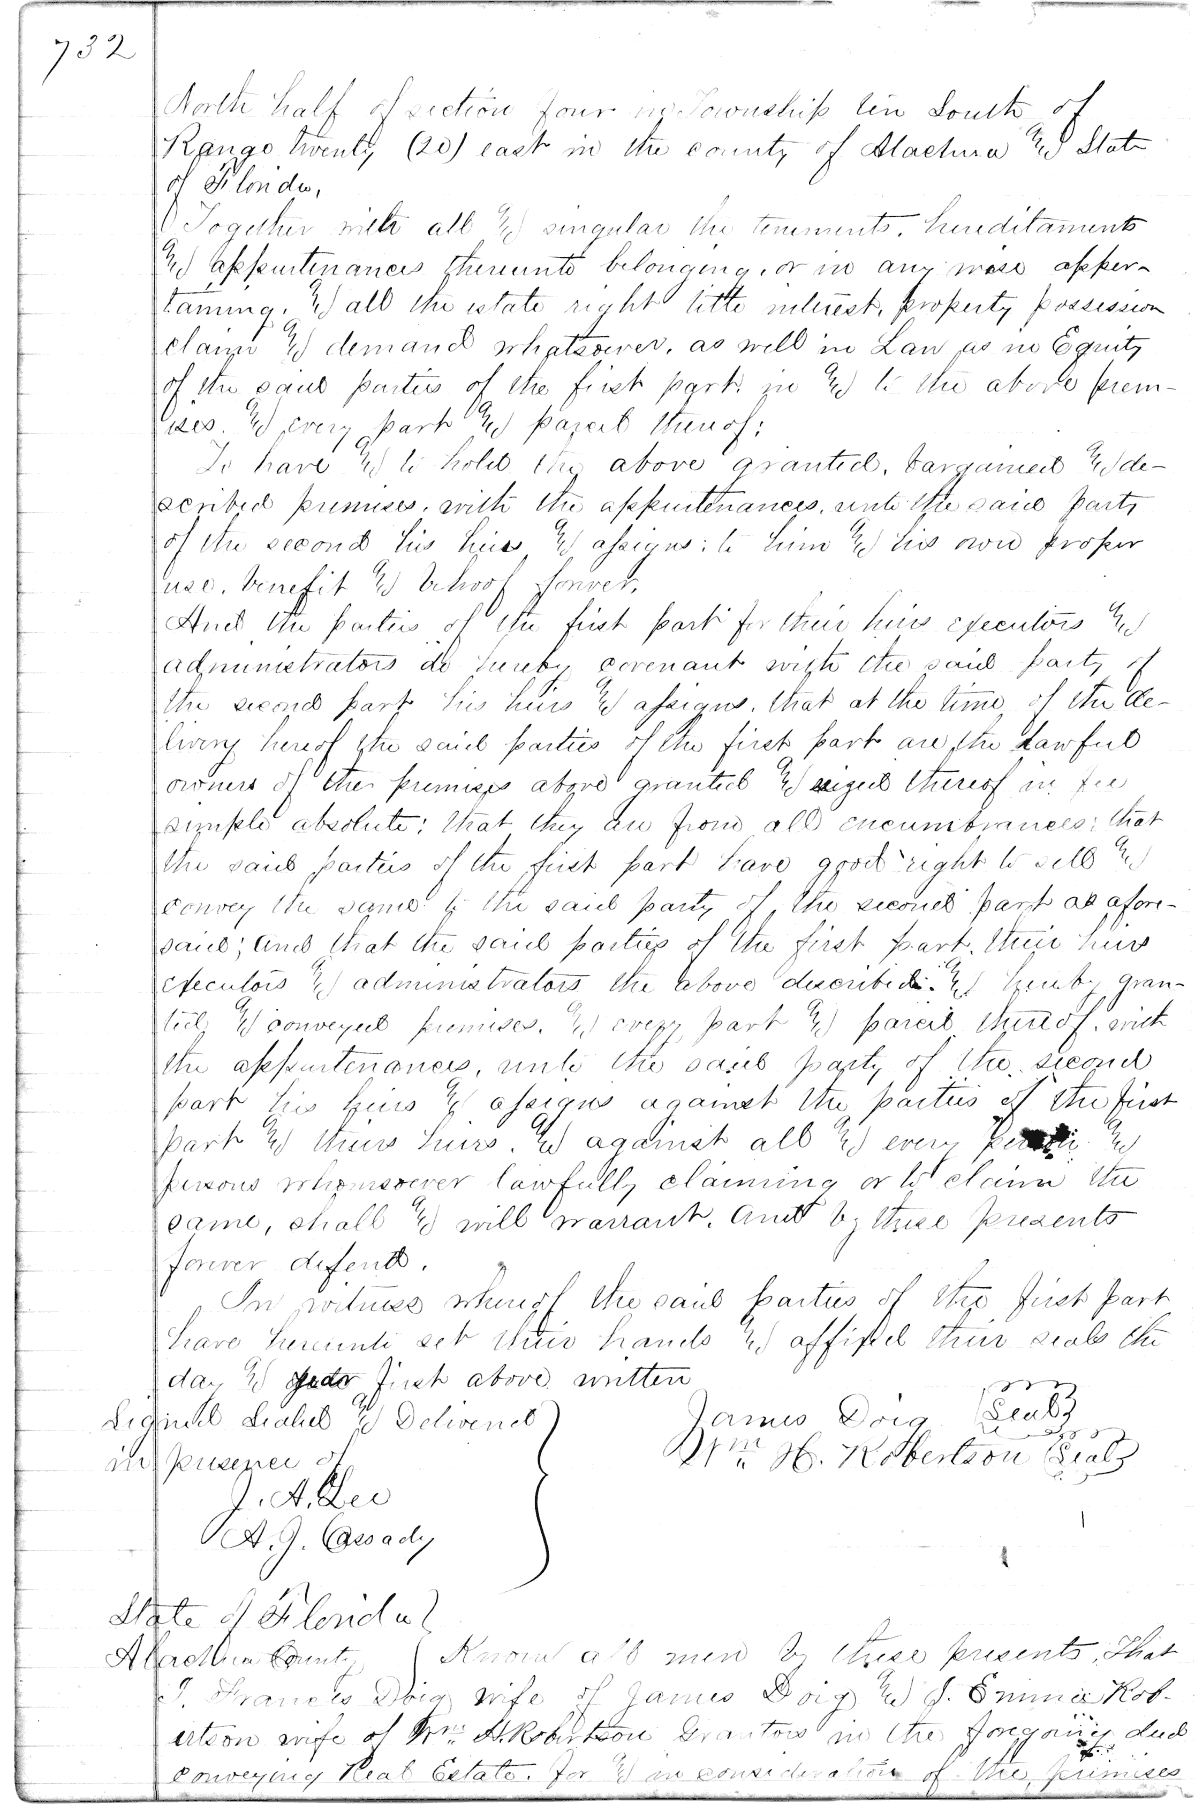 732
North half of section four in Township ten South of
Range twenty (20) east in the county of Alachua & State
of Florida,
Together with all & singular the tenements, hereditaments
& appurtenances thereunto belonging, or in any wise apper-
taining, & all the estate right title interest, property possession
claim & demand whatsoever, as well in Law as in Equity
of the said parties of the first part in & to the above prem-
ises & every part & parcel thereof;
To have & to hold the above granted, bargained & de-
scribed premises, with the appurtenances, unto the said party
of the second his heirs & assigns; to him & his own proper
use, benefit & behoof forever,
And the parties of the first part for their heirs executors &
administrators do hereby covenant with the said party of
the second part his heirs & assigns, that at the time of the de-
livery hereof the said parties of the first part are the Lawful
owners of the premises above granted & seized thereof in fee
simple absolute; that they are from all encumbrances; that
the said parties of the first part have good right to sell &
convey the same to the said party of the second part as afore-
said; and that the said parties of the first part, their heirs
executors & administrators the above described & hereby gran-
ted & conveyed premises, & every part & parcel thereof, with
the appurtenances, unto the said party of the second
part his heirs & assigns against the parties of the first
part & theirs heirs, & against all & every &
persons whomsoever lawfully claiming or to claim the
same, shall & will warrant, and by these presents
forever defend.
In witness whereof the said parties of the first part
have hereunto set their hands & affixed their seals the
day & year first above written
Signed Sealed & Delivered James Doig (Seal)
in presence of Wm H. Robertson (Seal)
J. A. Lee
A. J. Cassady
State of Florida
Alachua County Know all men by these presents, That
I, Frances Doig wife of James Doig & J. Emma Rob-
ertson wife of Wm H. Robertson Grantors in the foregoing deed
conveying Real Estate, for & in consideration of the premises